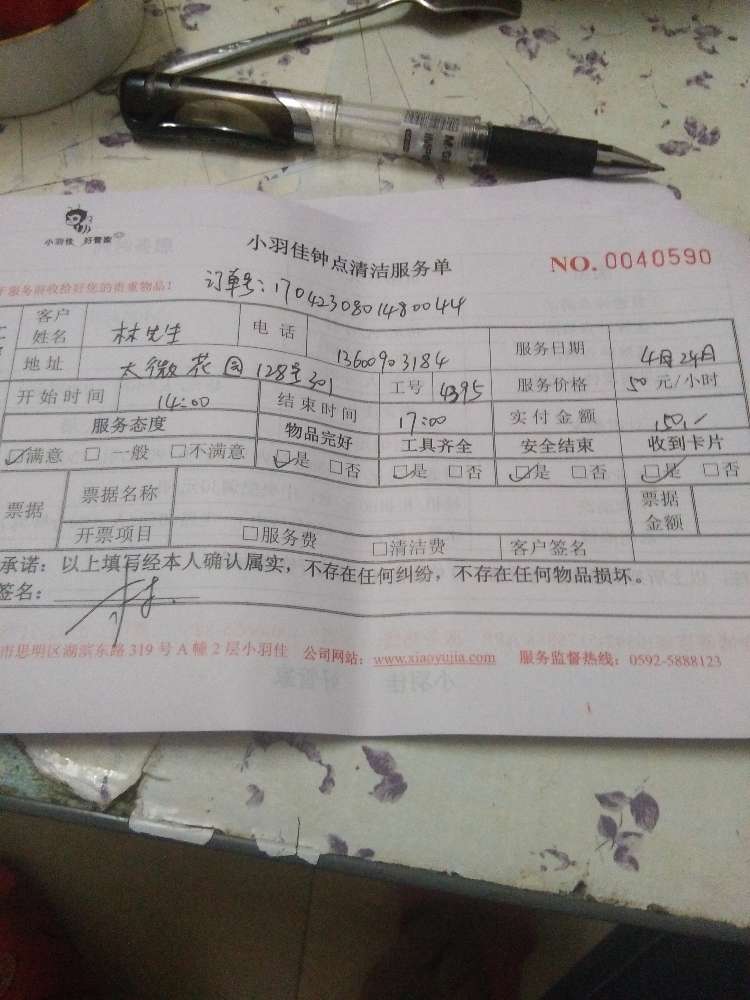 小羽佳 好管家
小羽佳钟点清洁服务单
NO. 0040590
服务前收拾好您的贵重物品!
订单号:1704230801480044
客户姓名 林先生 电话 13600903184 服务日期 4月24日
地址 太微花园128号301 工号 4395 服务价格 50元/小时
开始时间 14:00 结束时间 17:00 实付金额 150/-
服务态度 物品完好 工具齐全 安全结束 收到卡片
☑满意 □一般 □不满意 ☑是 □否 ☑是 □否 ☑是 □否 ☑是 □否
票据 票据名称 票据金额
开票项目 □服务费 □清洁费 客户签名
承诺:以上填写经本人确认属实,不存在任何纠纷,不存在任何物品损坏。
签名:
市思明区湖滨东路319号A幢2层小羽佳 公司网站:www.xiaoyujia.com 服务监督热线:0592-5888123